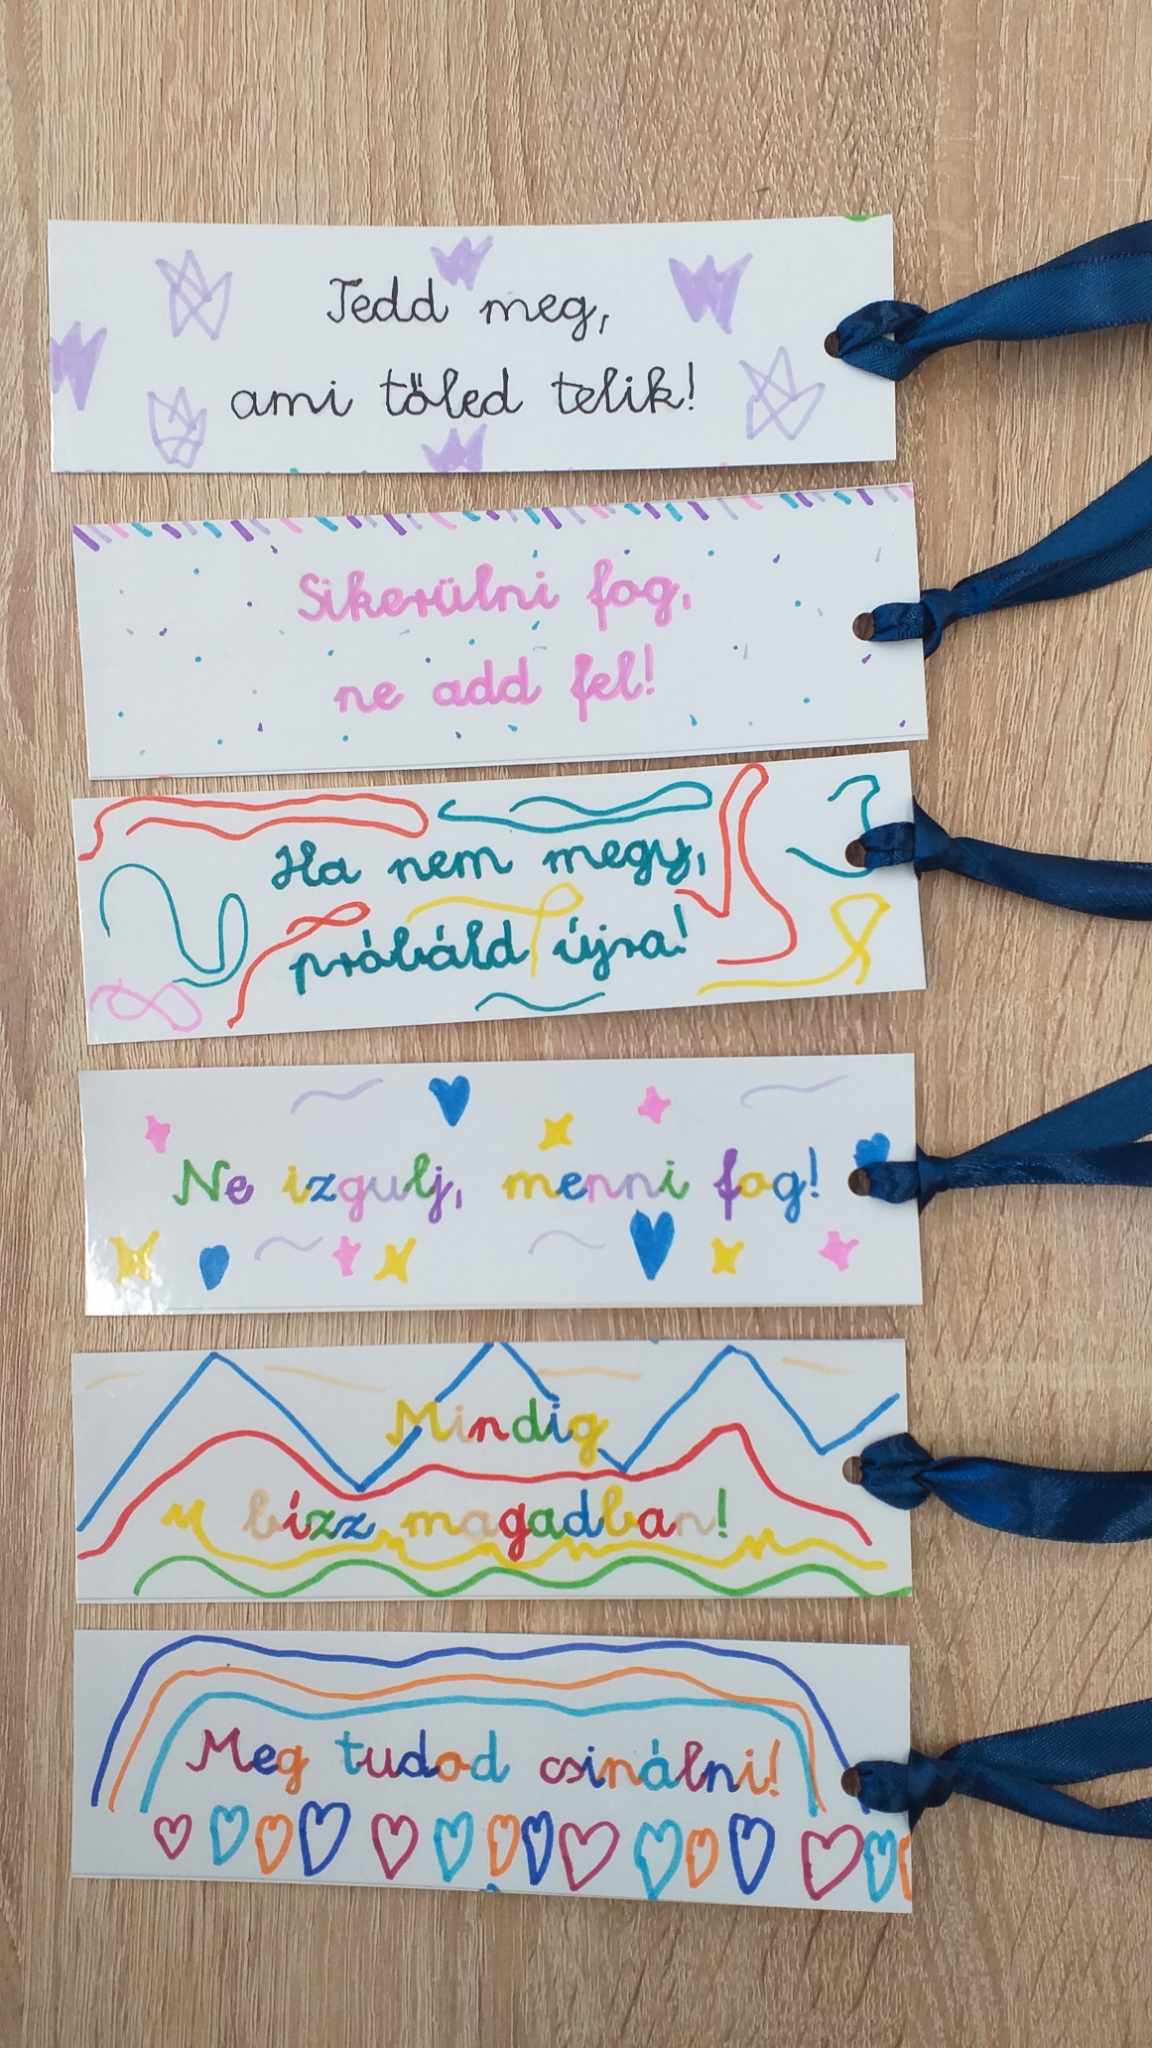 Tedd meg,
ami tőled telik!
Sikerülni fog,
ne add fel!
Ha nem megy,
próbáld újra!
Ne izgulj, menni fog!
Mindig
bízz magadban!
Meg tudod csinálni!